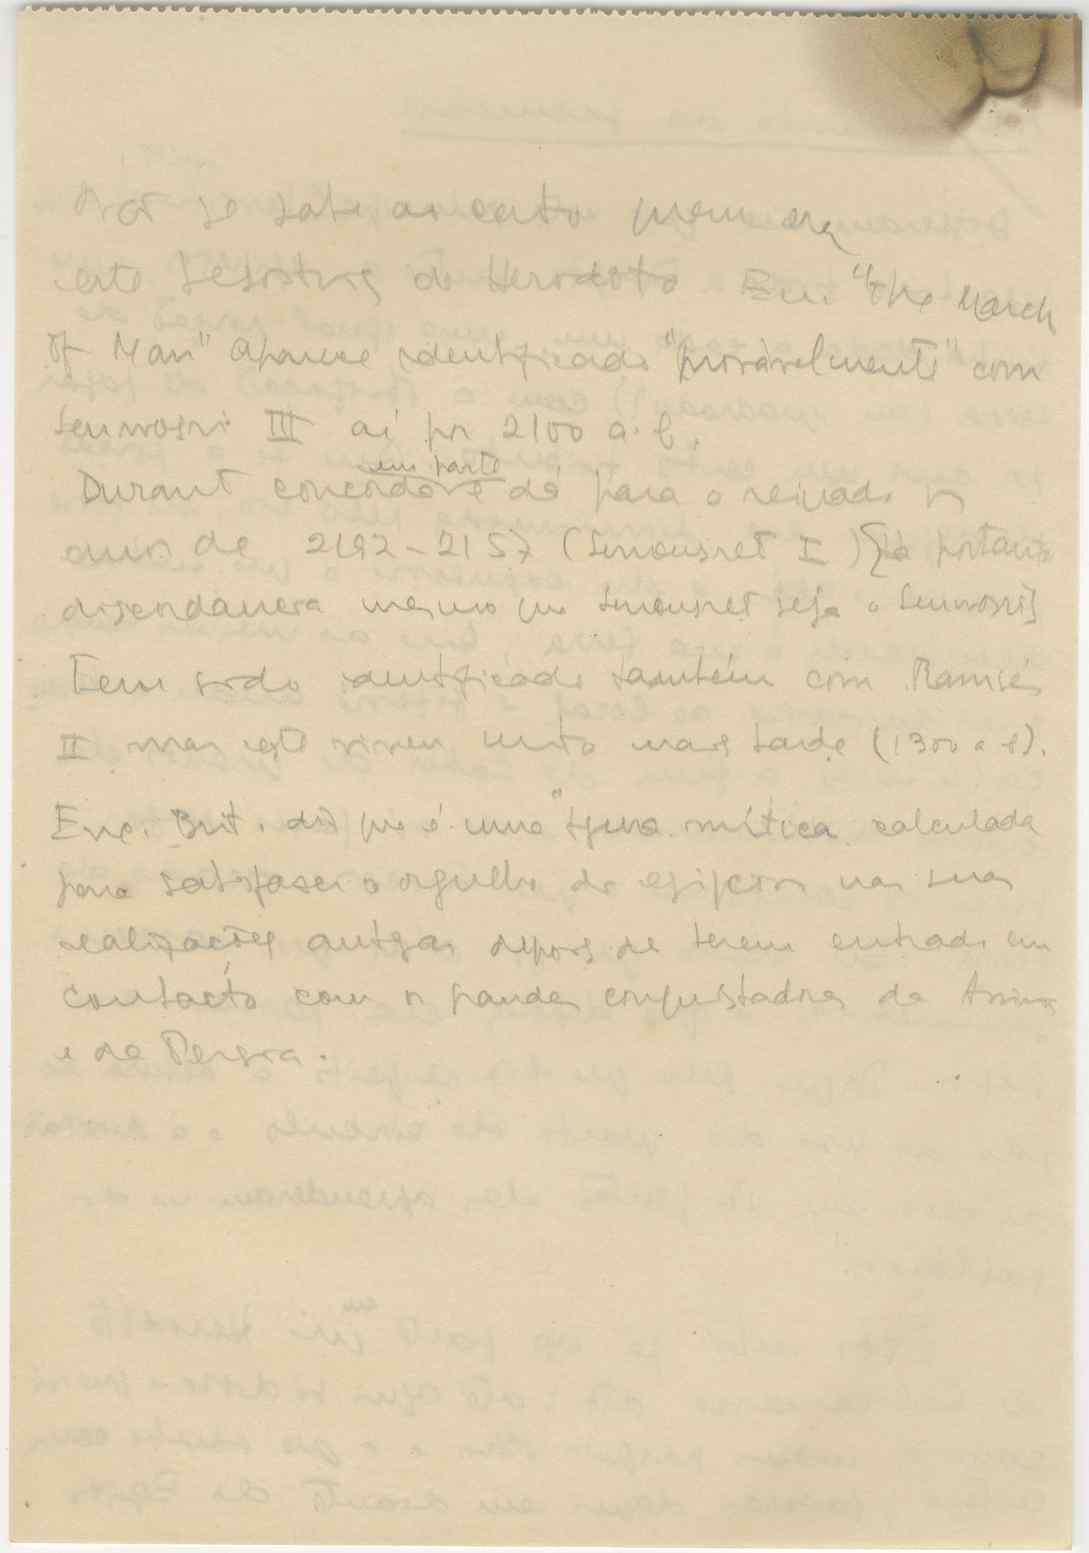 Não se sabe ao certo quem era
este Sesostris de Herodoto Em "The March
of Man" aparece identificado "provàvelmente" com
Senwosri III aí por 2100 a. C.
em parte
Durant concorda e dá para o reinado os
anos de 2192-2157 (Senousret I) [há portanto
discordancia mesmo que Senousret seja o Senwosri]
Tem sido identificado também com Ramsés
II mas este viveu muito mais tarde (1300 a C).
Enc. Brit. diz que é uma "figura mítica calculada
para satisfazer o orgulho dos egípcios nas suas
realizações antigas depois de terem entrado em
contacto com os grandes conquistadores da Assiria
e da Persia.